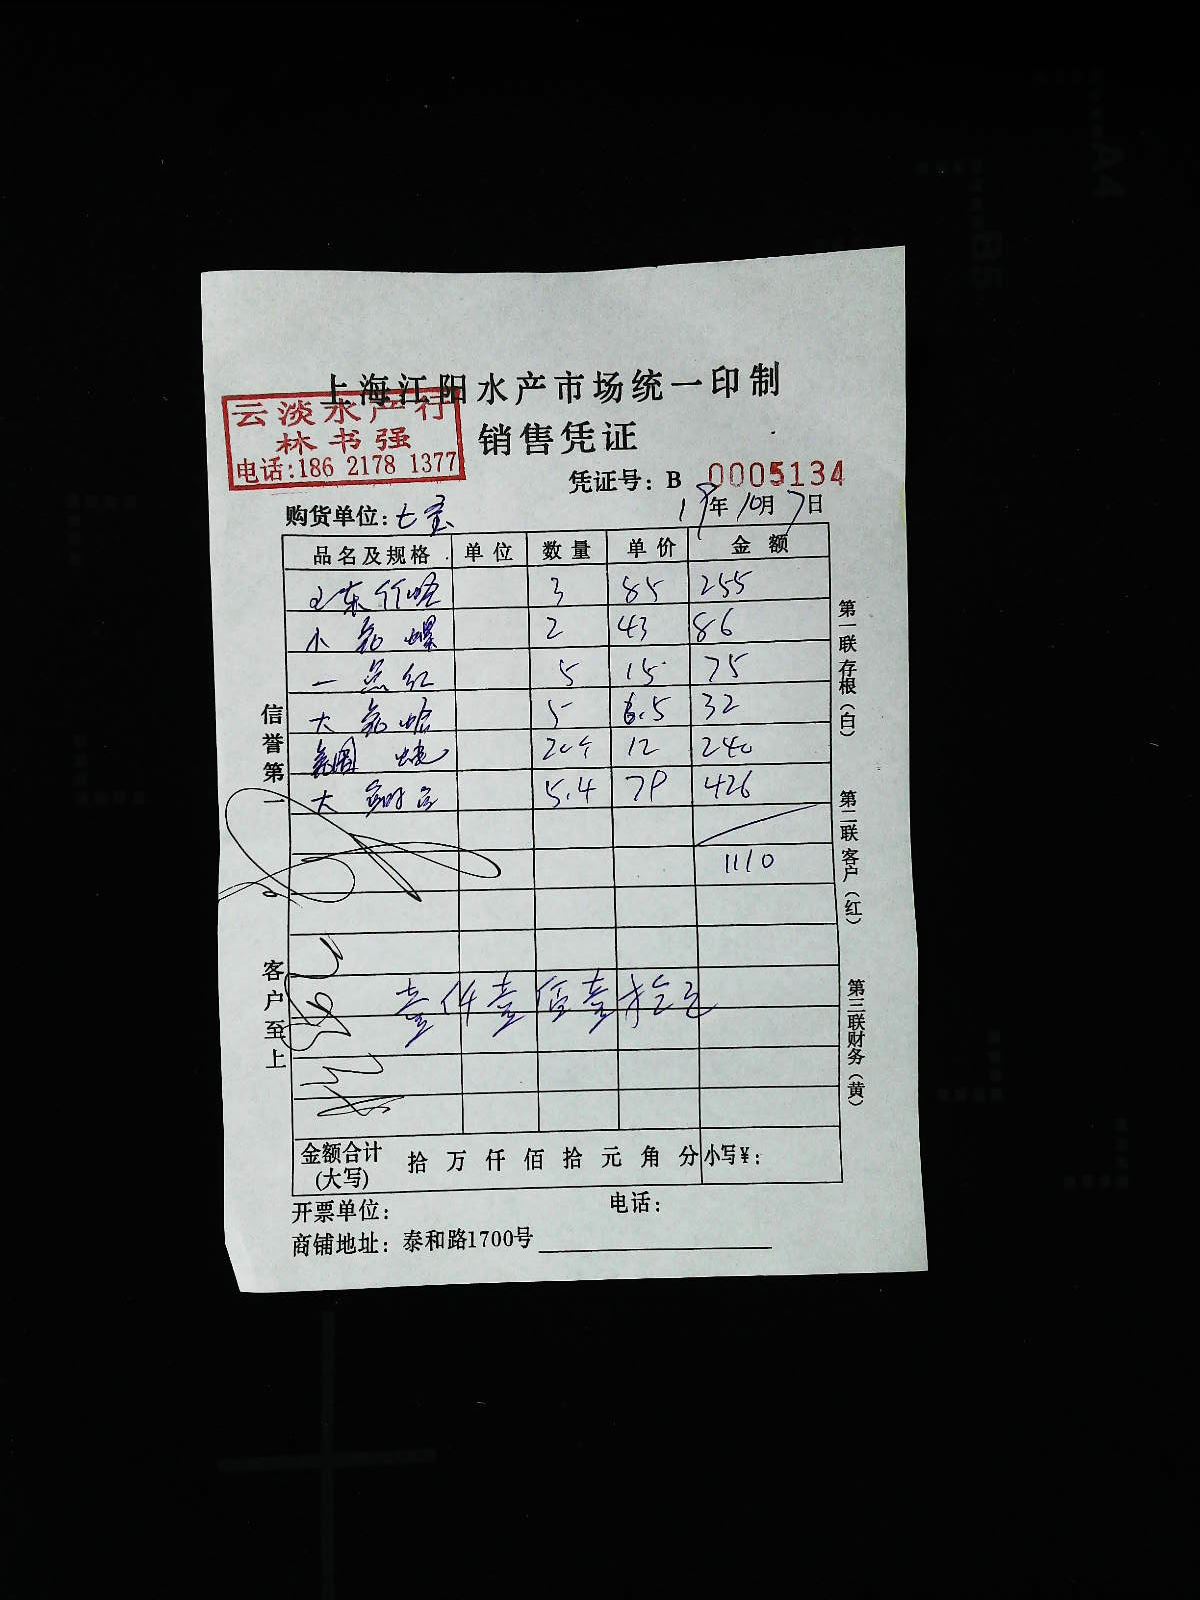 上海江阳水产市场统一印制
云淡水产行
林书强
电话:186 2178 1377
销售凭证
凭证号: B 0005134
购货单位: 七宝 19年10月7日
品名及规格 单位 数量 单价 金额
山东竹蛏 3 85 255
小花螺 2 43 86
一点红 5 15 75
大花蛤 5 6.5 32
20个 12 240
大 5.4 79 426
1110
壹仟壹佰壹拾元
金额合计(大写) 拾万仟佰拾元角分 小写¥:
开票单位: 电话:
商铺地址: 泰和路1700号
信誉第一。客户至上
第一联存根(白)
第二联客户(红)
第三联财务(黄)